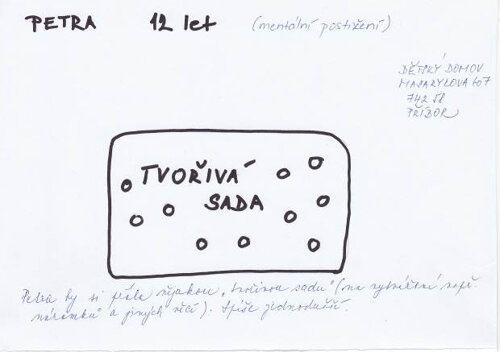 PETRA 12 let (mentální postižení)
DĚTSKÝ DOMOV
MASARYKOVA 607
742 58
PŘÍBOR
TVOŘIVÁ
SADA
Petra by si přála nějakou „tvořivou sadu" (na vytváření např.
náramků a jiných věcí). Spíše jednodušší.